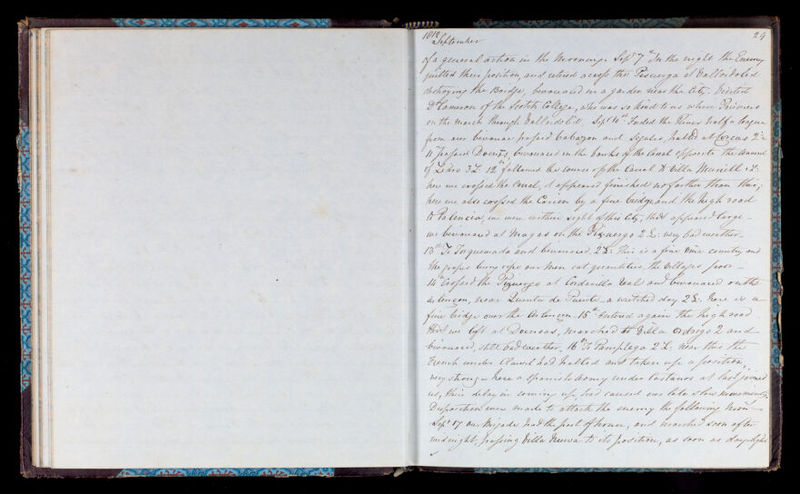 1812 September
24
of a general action in the Morning. Sepr 7th In the night the Enemy
quitted their position, and retired across the Pisuerga at Valladolid
destroying the Bridge, bivouaced in a garden near the City. Visited
Dr Cameron of the Scotch College, who was so kind to us when Prisoners
on the march through Valladolid. Sepr 10th Forded the River half a league
from our bivouac passed Cabazon and Sigales, halted at Corcas 2 L
11th passed Duenas, bivouaced on the banks of the Canal opposite the
of 3 L. 12th followed the course of the Canal to Villa Muriell 1 L.
here we crossed the Canal, it appeared finished no farther than this;
here we also crossed the Carion by a fine bridge and the high road
to Palencia, we were within sight of this City, that appeared large
we bivouaced at Magas on the Pisuerga 2 L. very bad weather.
13th To Torquemada and bivouaced, 2 L. This is a fine Vine country and
the grapes being ripe our Men eat quantities the Villages poor
14th Crossed the Pisuerga at Cordovilla Real and bivouaced on the
Arlançon, near Quinta de Puente a wretched day 2 L. here is a
fine bridge over the Arlançon. 15th Entered again the high road
that we left at Duenas, marched to Villa Odrigo 2 and
bivouaced, still bad weather. 16th To Pampliga 2 L. near this the
French under Clausel had halted and taken up a position
very strong. here a Spanish Army under Castanos at last joined
us, their delay in coming up, had caused our late slow movements
Disposition were made to attack the enemy the following Morng
Sepr 17 our Brigade had the post of honor, and marched soon after
midnight, passing Villa Nueva to its position, as soon as daylight